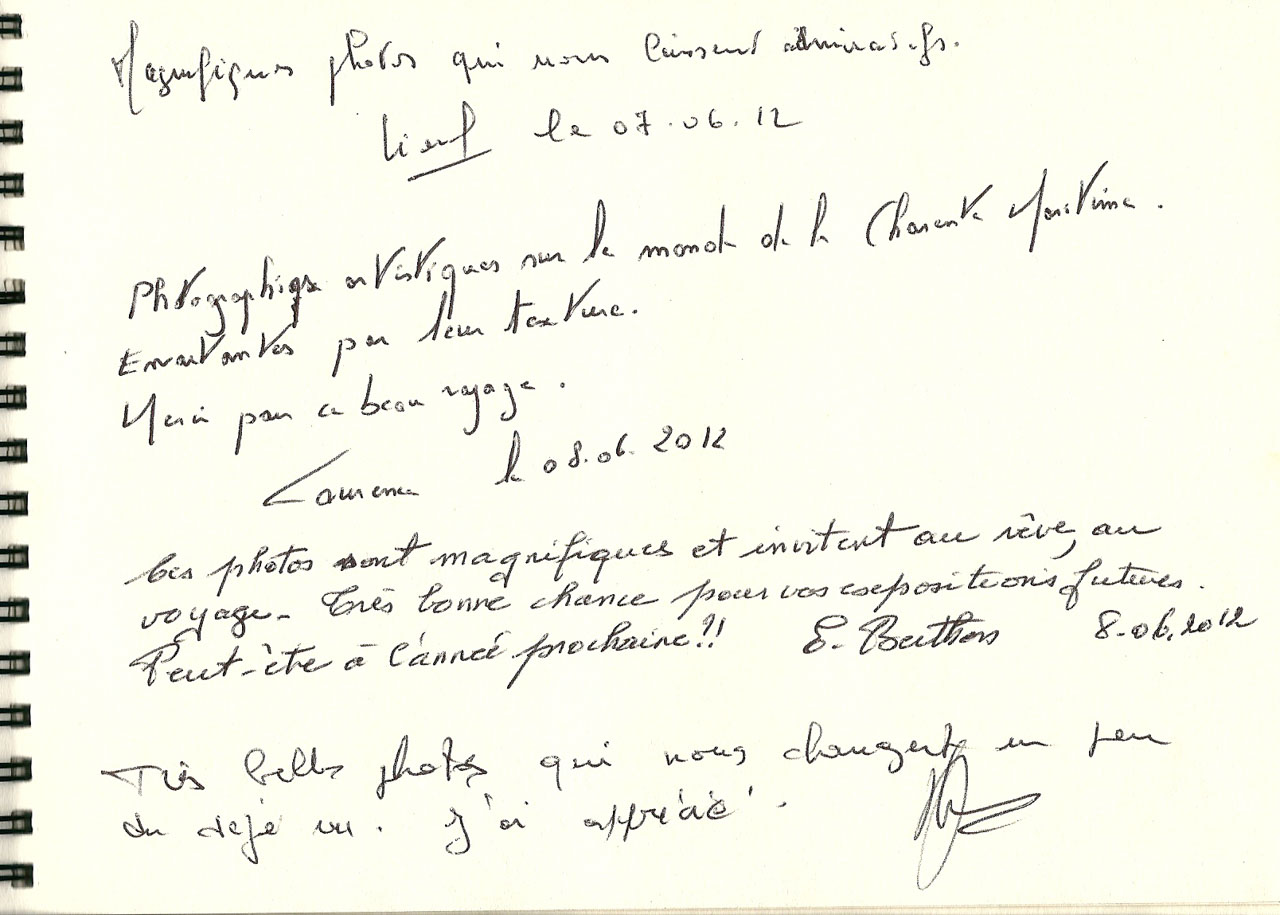 Magnifiques photos qui nous laissent admiratifs.
le 07.06.12
Photographies artistiques sur le monde de la Charente Maritime.
Envoûtantes par leur texture.
Merci pour ce beau voyage.
Laurence le 08.06.2012
Ces photos sont magnifiques et invitent au rêve, au
voyage. Très bonne chance pour vos expositions futures.
Peut-être à l'année prochaine!! E. Berthos 8.06.2012
Très belles photos qui nous changent un peu
du déjà vu. J'ai apprécié.